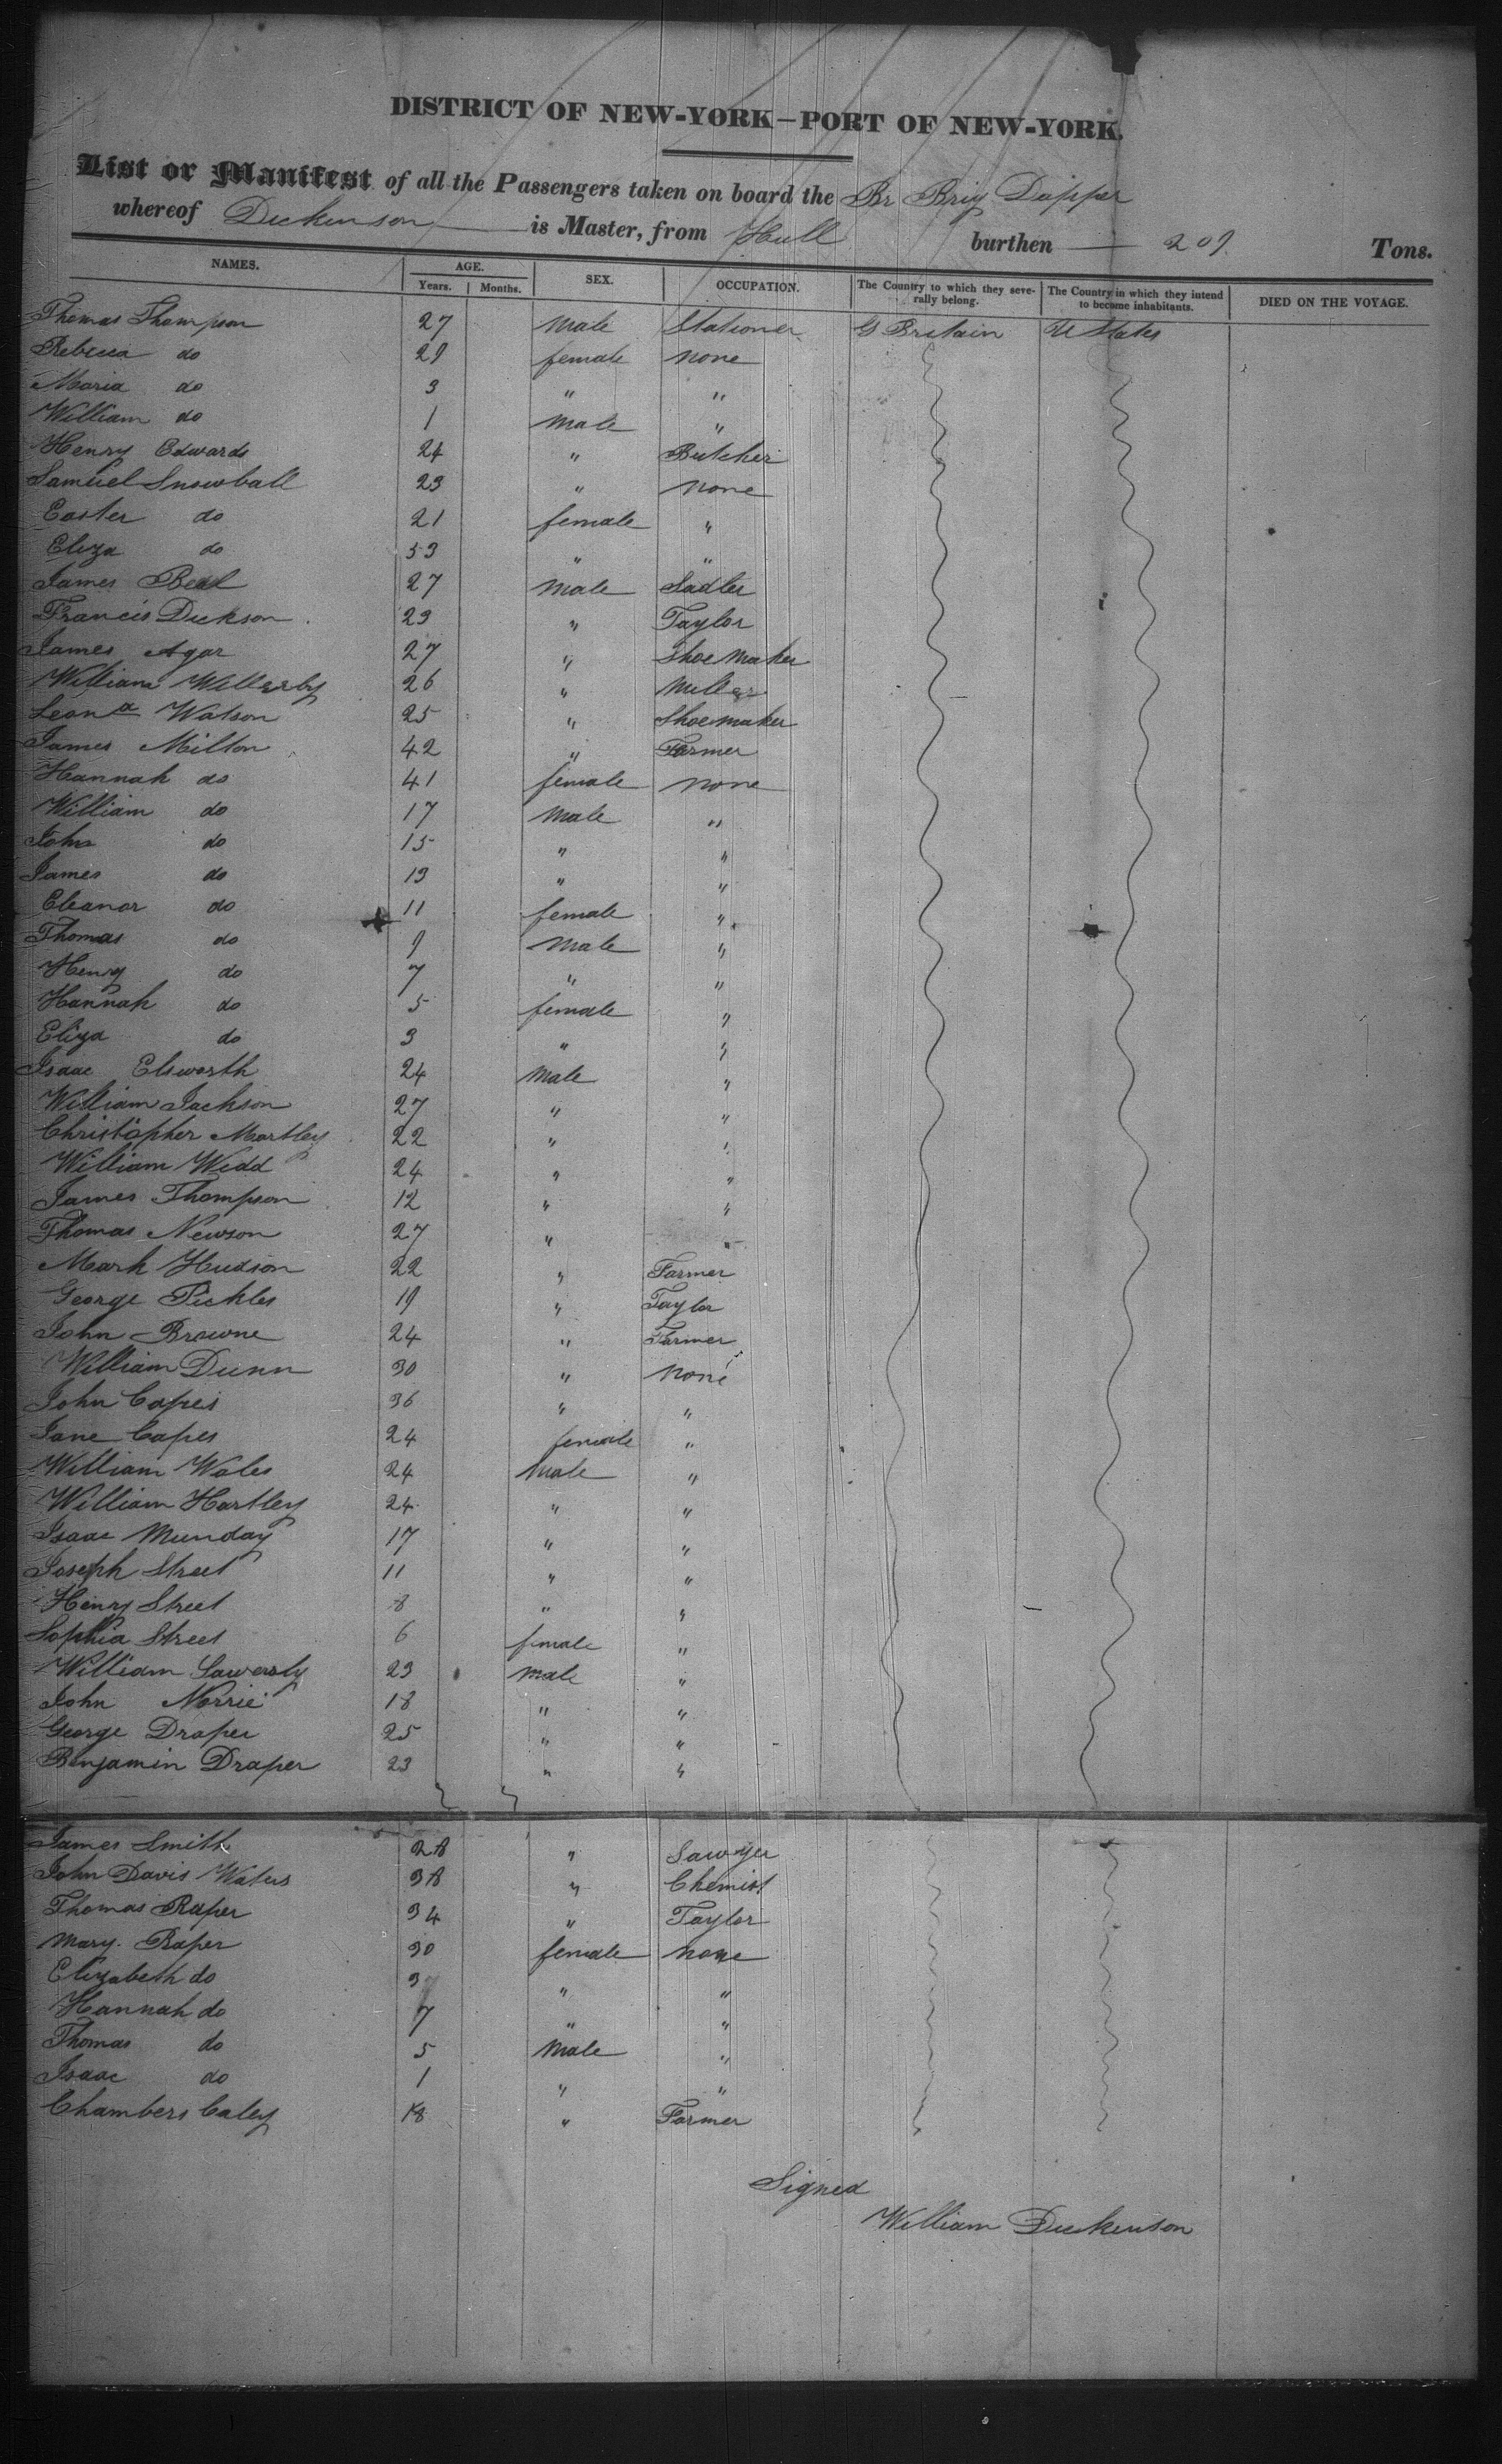 DISTRICT OF NEW-YORK—PORT OF NEW-YORK.
List or Manifest of all the Passengers taken on board the Br Brig Dapper
whereof Dickinson is Master, from Hull burthen 209 Tons.
NAMES. AGE. Years. Months. SEX. OCCUPATION. The Country to which they severally belong. The Country in which they intend to become inhabitants. DIED ON THE VOYAGE.
Thomas Thompson 27 Male Stationer G Britain U States
Rebecca do 29 female none
Maria do 3 " "
William do 1 Male "
Henry Edwards 24 " Butcher
Samuel Snowball 23 " none
Easter do 21 female "
Eliza do 53 " "
James Beal 27 Male Sadler
Francis Dickson 23 " Taylor
James Agar 27 " Shoe Maker
William Willerby 26 " Miller
Leond Watson 25 " Shoemaker
James Milton 42 " Farmer
Hannah do 41 female none
William do 17 Male "
John do 15 " "
James do 13 " "
Eleanor do 11 female "
Thomas do 9 Male "
Henry do 7 " "
Hannah do 5 female "
Eliza do 3 " "
Isaac Elsworth 24 Male "
William Jackson 27 " "
Christopher Martley 22 " "
William Wedd 24 " "
James Thompson 12 " "
Thomas Newson 27 " "
Mark Hudson 22 " Farmer
George Pickles 19 " Taylor
John Browne 24 " Farmer
William Dunn 30 " none
John Capes 36 " "
Jane Capes 24 female "
William Wales 24 Male "
William Hartley 24 " "
Isaac Munday 17 " "
Joseph Street 11 " "
Henry Street 8 " "
Sophia Street 6 female "
William 23 male "
John Norrie 18 " "
George Draper 25 " "
Benjamin Draper 23 " "
James Smith 28 " Sawyer
John Davis Waters 38 " Chemist
Thomas Raper 34 " Taylor
Mary Raper 30 female none
Elizabeth do " "
Hannah do 7 " "
Thomas do 5 Male "
Isaac do 1 " "
Chambers Caley 18 " Farmer
Signed
William Dickenson